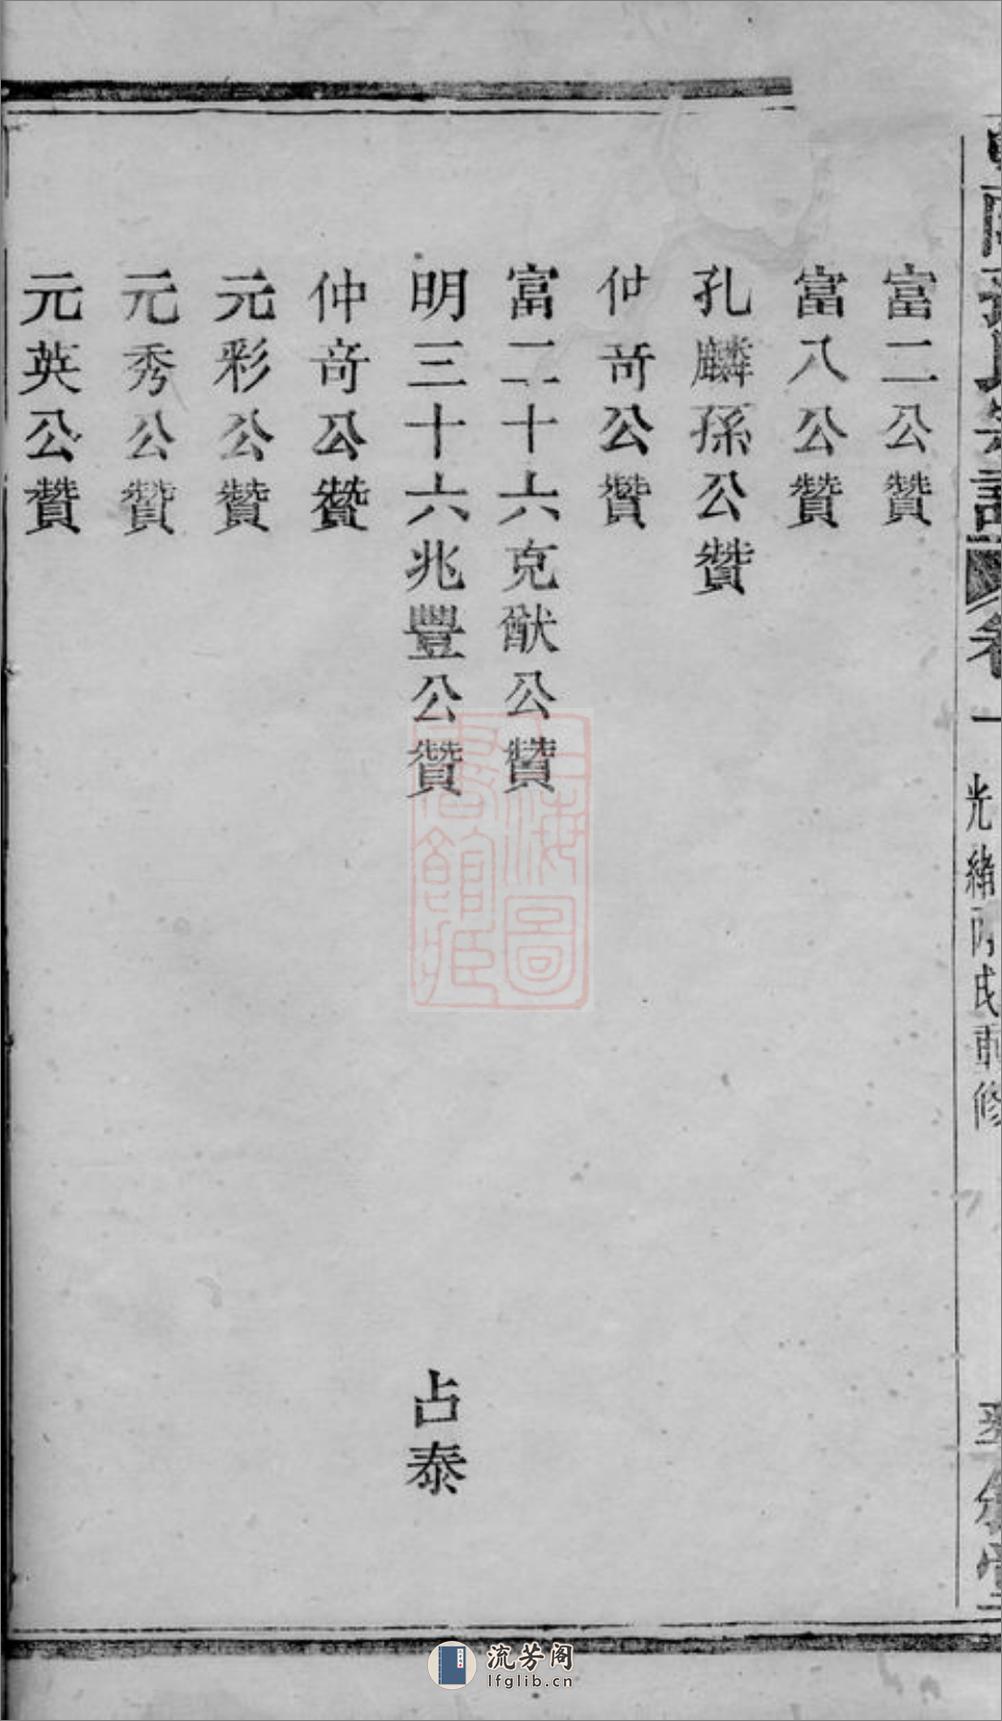 富二公贊
富八公贊
孔麟孫公贊
仲奇公贊
富二十六克猷公贊
明三十六兆豐公贊 占泰
仲奇公贊
元彩公贊
元秀公贊
元英公贊
卷一 光緒 重修
上海圖書館藏
流芳阁
lfglib.cn